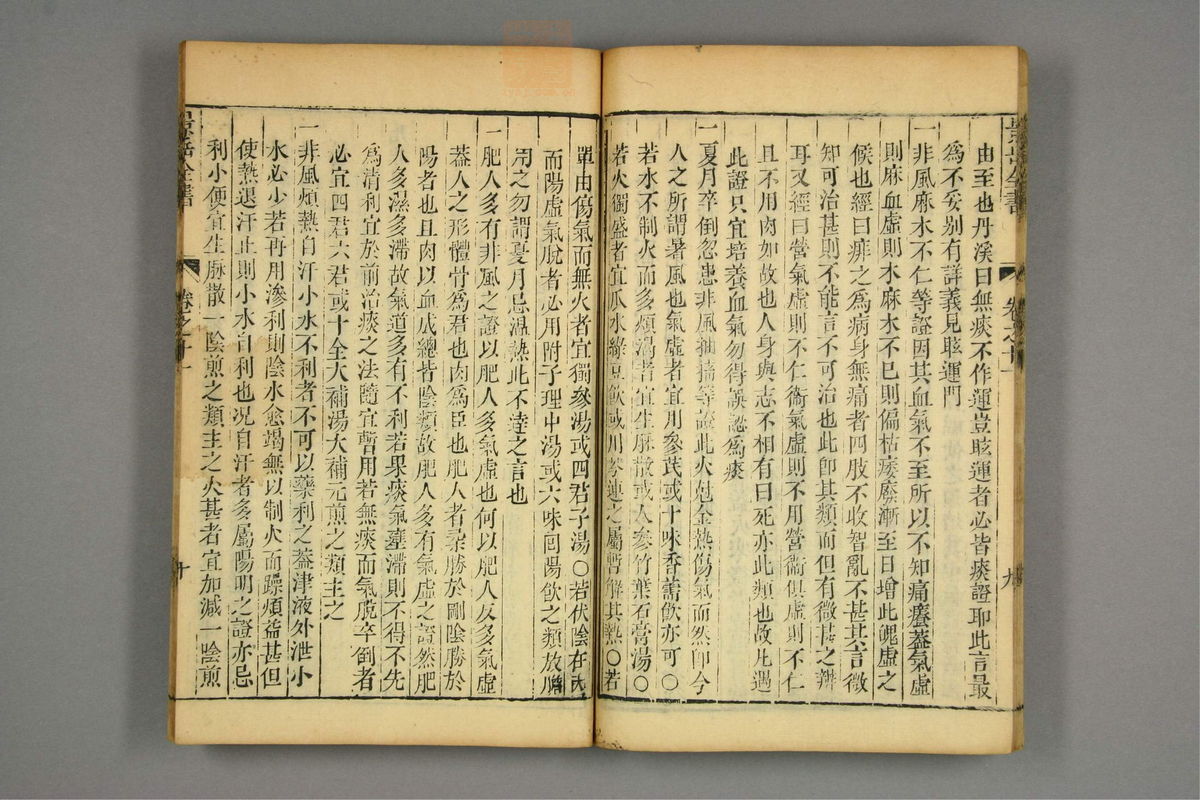 由至也丹溪曰無痰不作運豈眩運者必皆痰證耶此言最
為不妥別有詳義見眩運門
一非風麻木不仁等證因其血氣不至所以不知痛癢蓋氣虛
則麻血虛則木麻木不已則偏枯痿廢漸至日增此魄虛之
候也經曰痱之為病身無痛者四肢不收智亂不甚其言微
知可治甚則不能言不可治也此卽其類而但有微甚之辨
耳又經曰營氣虛則不仁衞氣虛則不用營衞俱虛則不仁
且不用肉如故也人身與志不相有曰死亦此類也故凡遇
此證只宜培養血氣勿得誤認為痰
一夏月卒倒忽患非風抽搐等證此火尅金熱傷氣而然卽今
人之所謂暑風也氣虛者宜用參芪或十味香薷飲亦可○
若水不制火而多煩渴者宜生脉散或人參竹葉石膏湯○
若火獨盛者宜瓜水綠豆飲或用芩連之屬暫解其熱○若
景岳全書
卷之十一
九
單由傷氣而無火者宜獨參湯或四君子湯○若伏陰在內
而陽虛氣脫者必用附子理中湯或六味囘陽飲之類放膽
用之勿謂夏月忌温熱此不達之言也
一肥人多有非風之證以肥人多氣虛也何以肥人反多氣虛
葢人之形體骨為君也肉為臣也肥人者柔勝於剛陰勝於
陽者也且肉以血成總皆陰類故肥人多有氣虛之證然肥
人多濕多滯故氣道多有不利若果痰氣壅滯則不得不先
為清利宜於前治痰之法隨宜暫用若無痰而氣脫卒倒者
必宜四君六君或十全大補湯大補元煎之類主之
一非風煩熱自汗小水不利者不可以藥利之葢津液外泄小
水必少若再用滲利則陰水愈竭無以制火而躁煩益甚但
使熱退汗止則小水自利也况自汗者多屬陽明之證亦忌
利小便宜生脉散一陰煎之類主之火甚者宜加減一陰煎
景岳全書
卷之十一
十